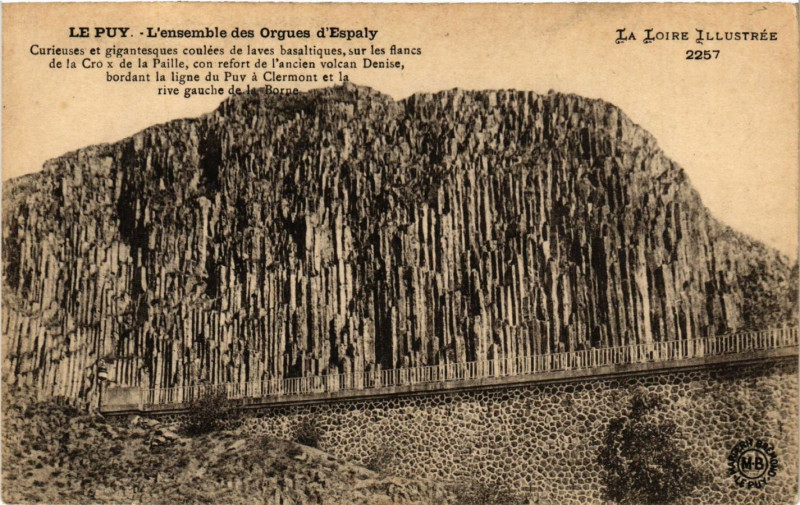 LE PUY. - L'ensemble des Orgues d'Espaly
Curieuses et gigantesques coulées de laves basaltiques, sur les flancs
de la Cro x de la Paille, con refort de l'ancien volcan Denise,
bordant la ligne du Puy à Clermont et la
rive gauche de la Borne.
LA LOIRE ILLUSTRÉE
2257
MARGERIT-BRÉMOND
M-B
LE PUY